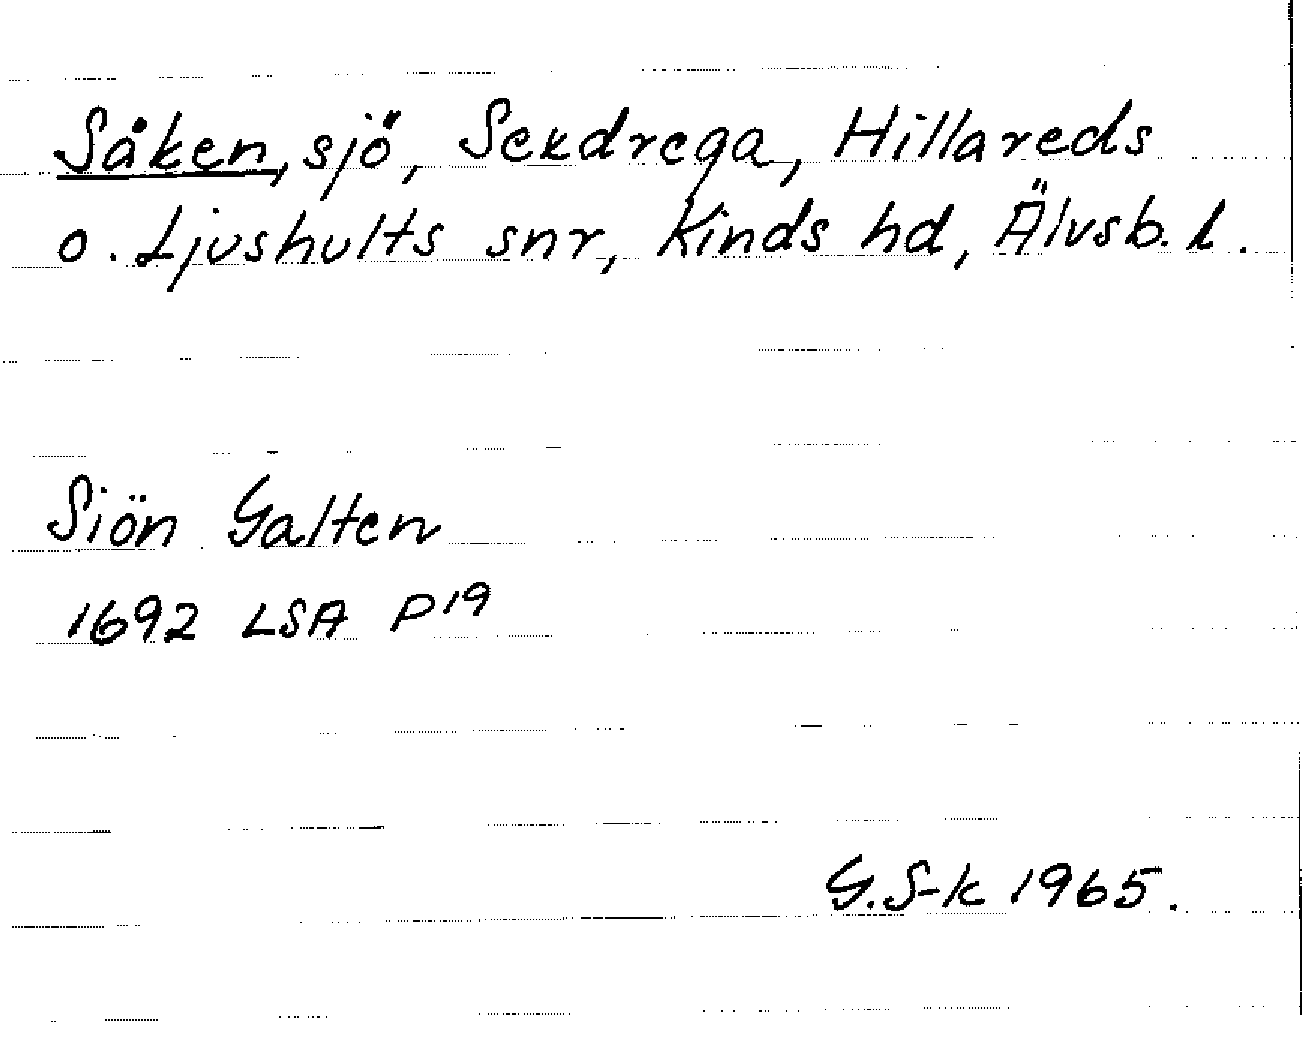 Såken, sjö, Sexdrega, Hillareds
o. Ljushults snr, Kinds hd, Älvsb. l.
Siön Galten
1692 LSA P19
G. S-k 1965.